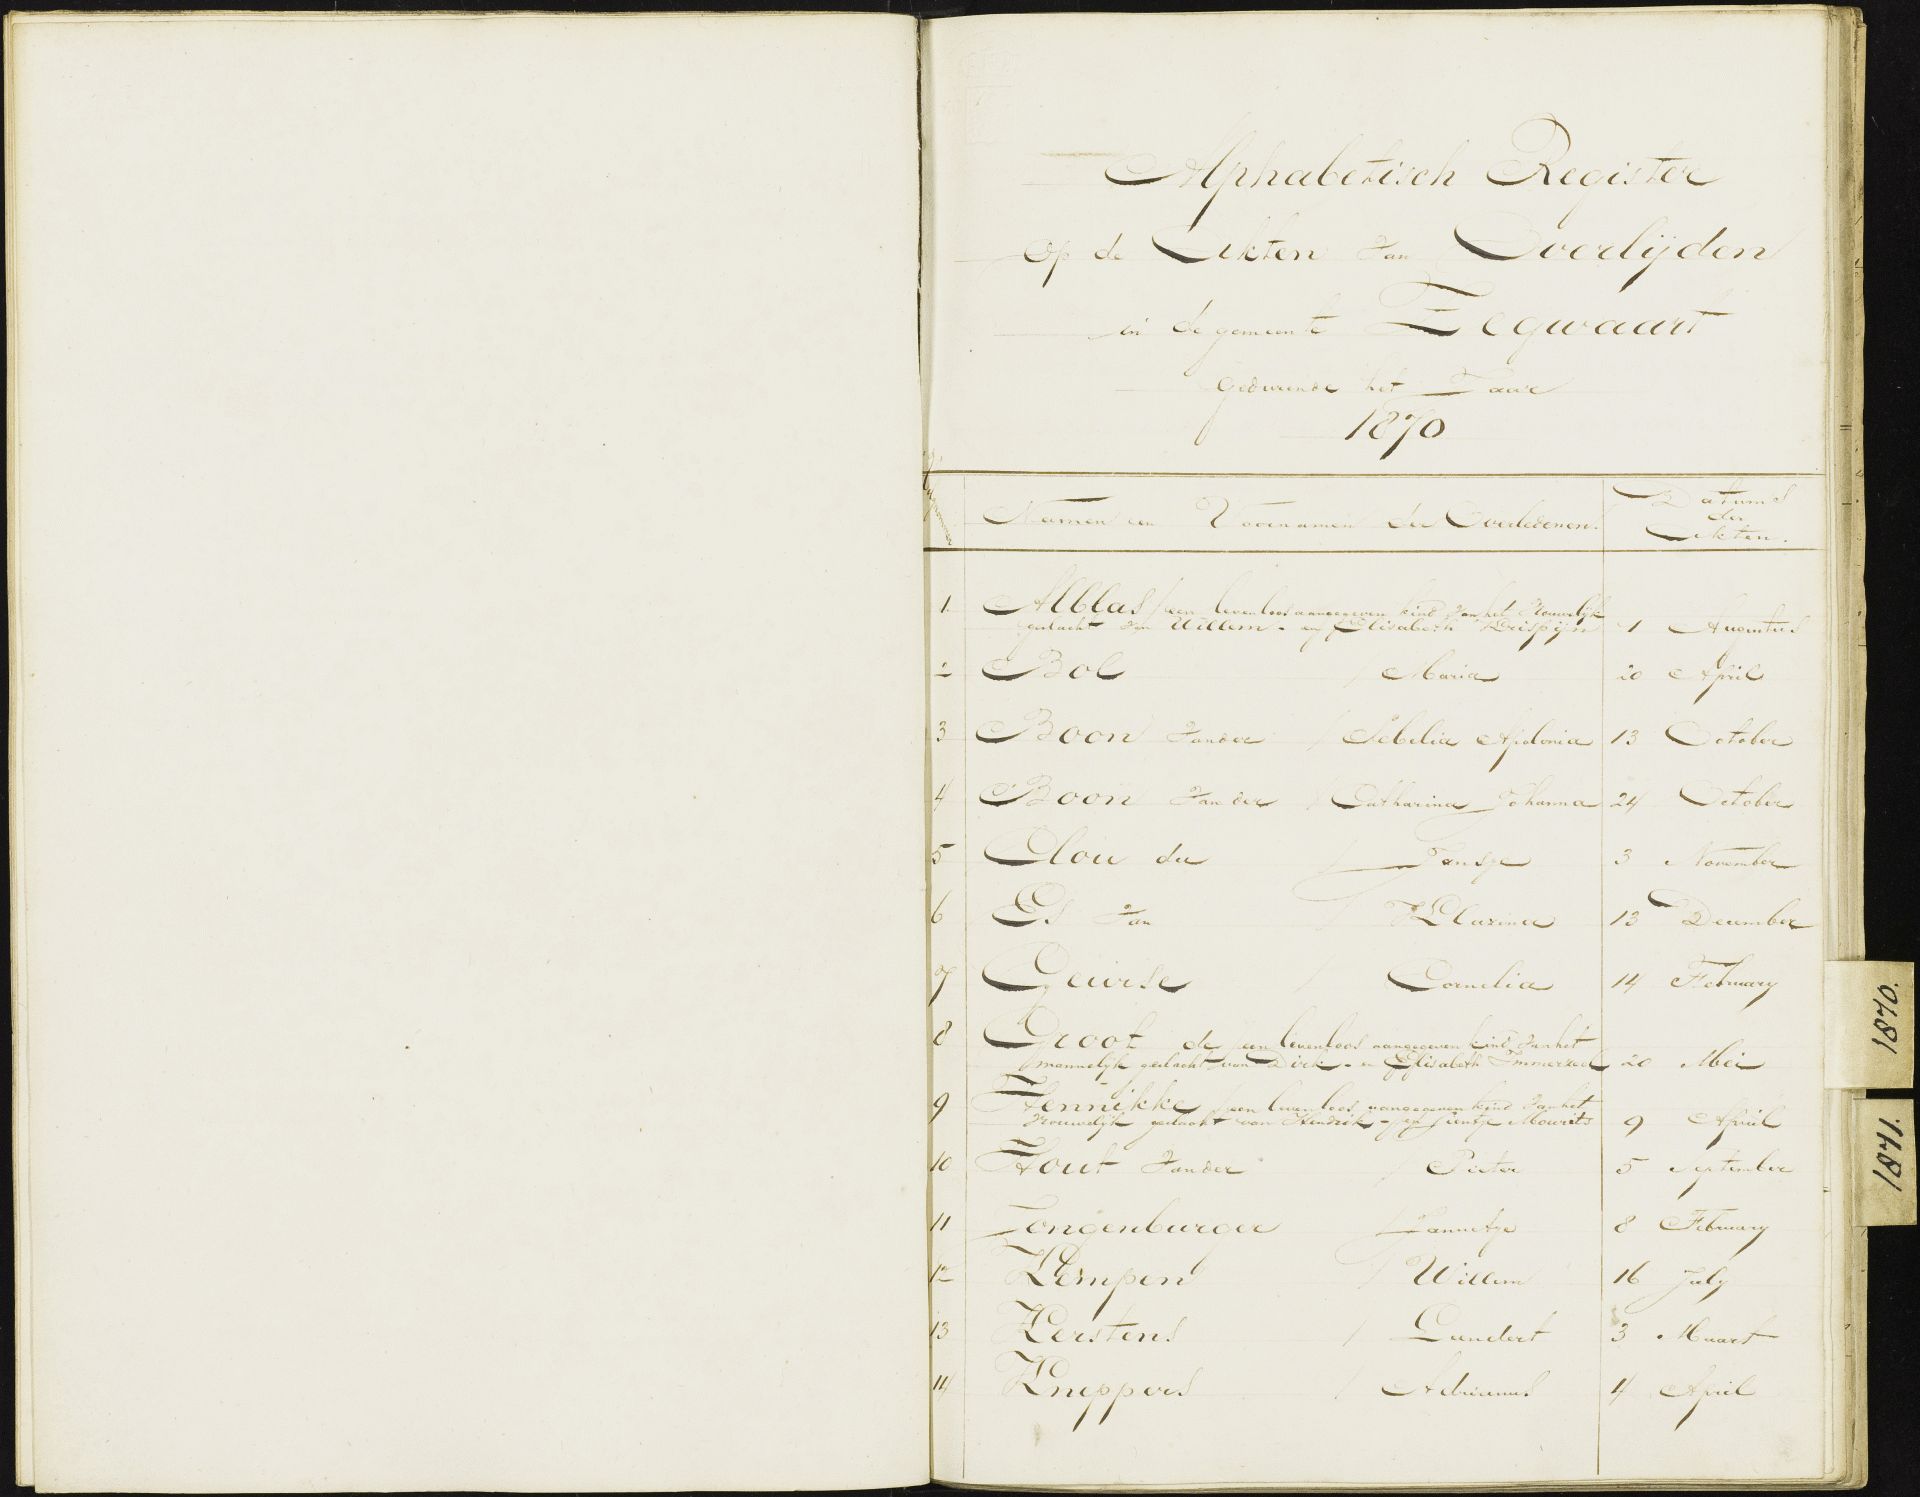 Alphabetisch Register
op de Akten van Overlijden
in de gemeente Zegwaart
gedurende het Jaar
1870
Namen en Voornamen der Overledenen.
Datums
der
Akten.
1 Alblas / een levenloos aangegeven kind van het Vrouwelijk
geslacht van Willem - en Elisabeth Krispijn 1 Augustus
2 Bol / Maria 20 April
3 Boon van der / Sebelia Apolonia 13 October
4 Boon van der / Catharina Johanna 24 October
5 Clou du / Jansje 3 November
6 Es van / Klazina 13 December
7 Geurse / Cornelia 14 February
8 Groot de / een levenloos aangegeven kind van het
mannelijk geslacht van Dirk - en Elisabeth Immerzeel 20 Mei
9 Hennikke / een levenloos aangegeven kind van het
vrouwelijk geslacht van Hendrik - en Jientje Mourits 9 April
10 Hout van der / Pieter 5 September
11 Jongenburger / Jannetje 8 February
12 Kempen / Willem 16 July
13 Kerstens / Leendert 3 Maart
14 Kneppers / Adrianus 4 April
1870.
1871.